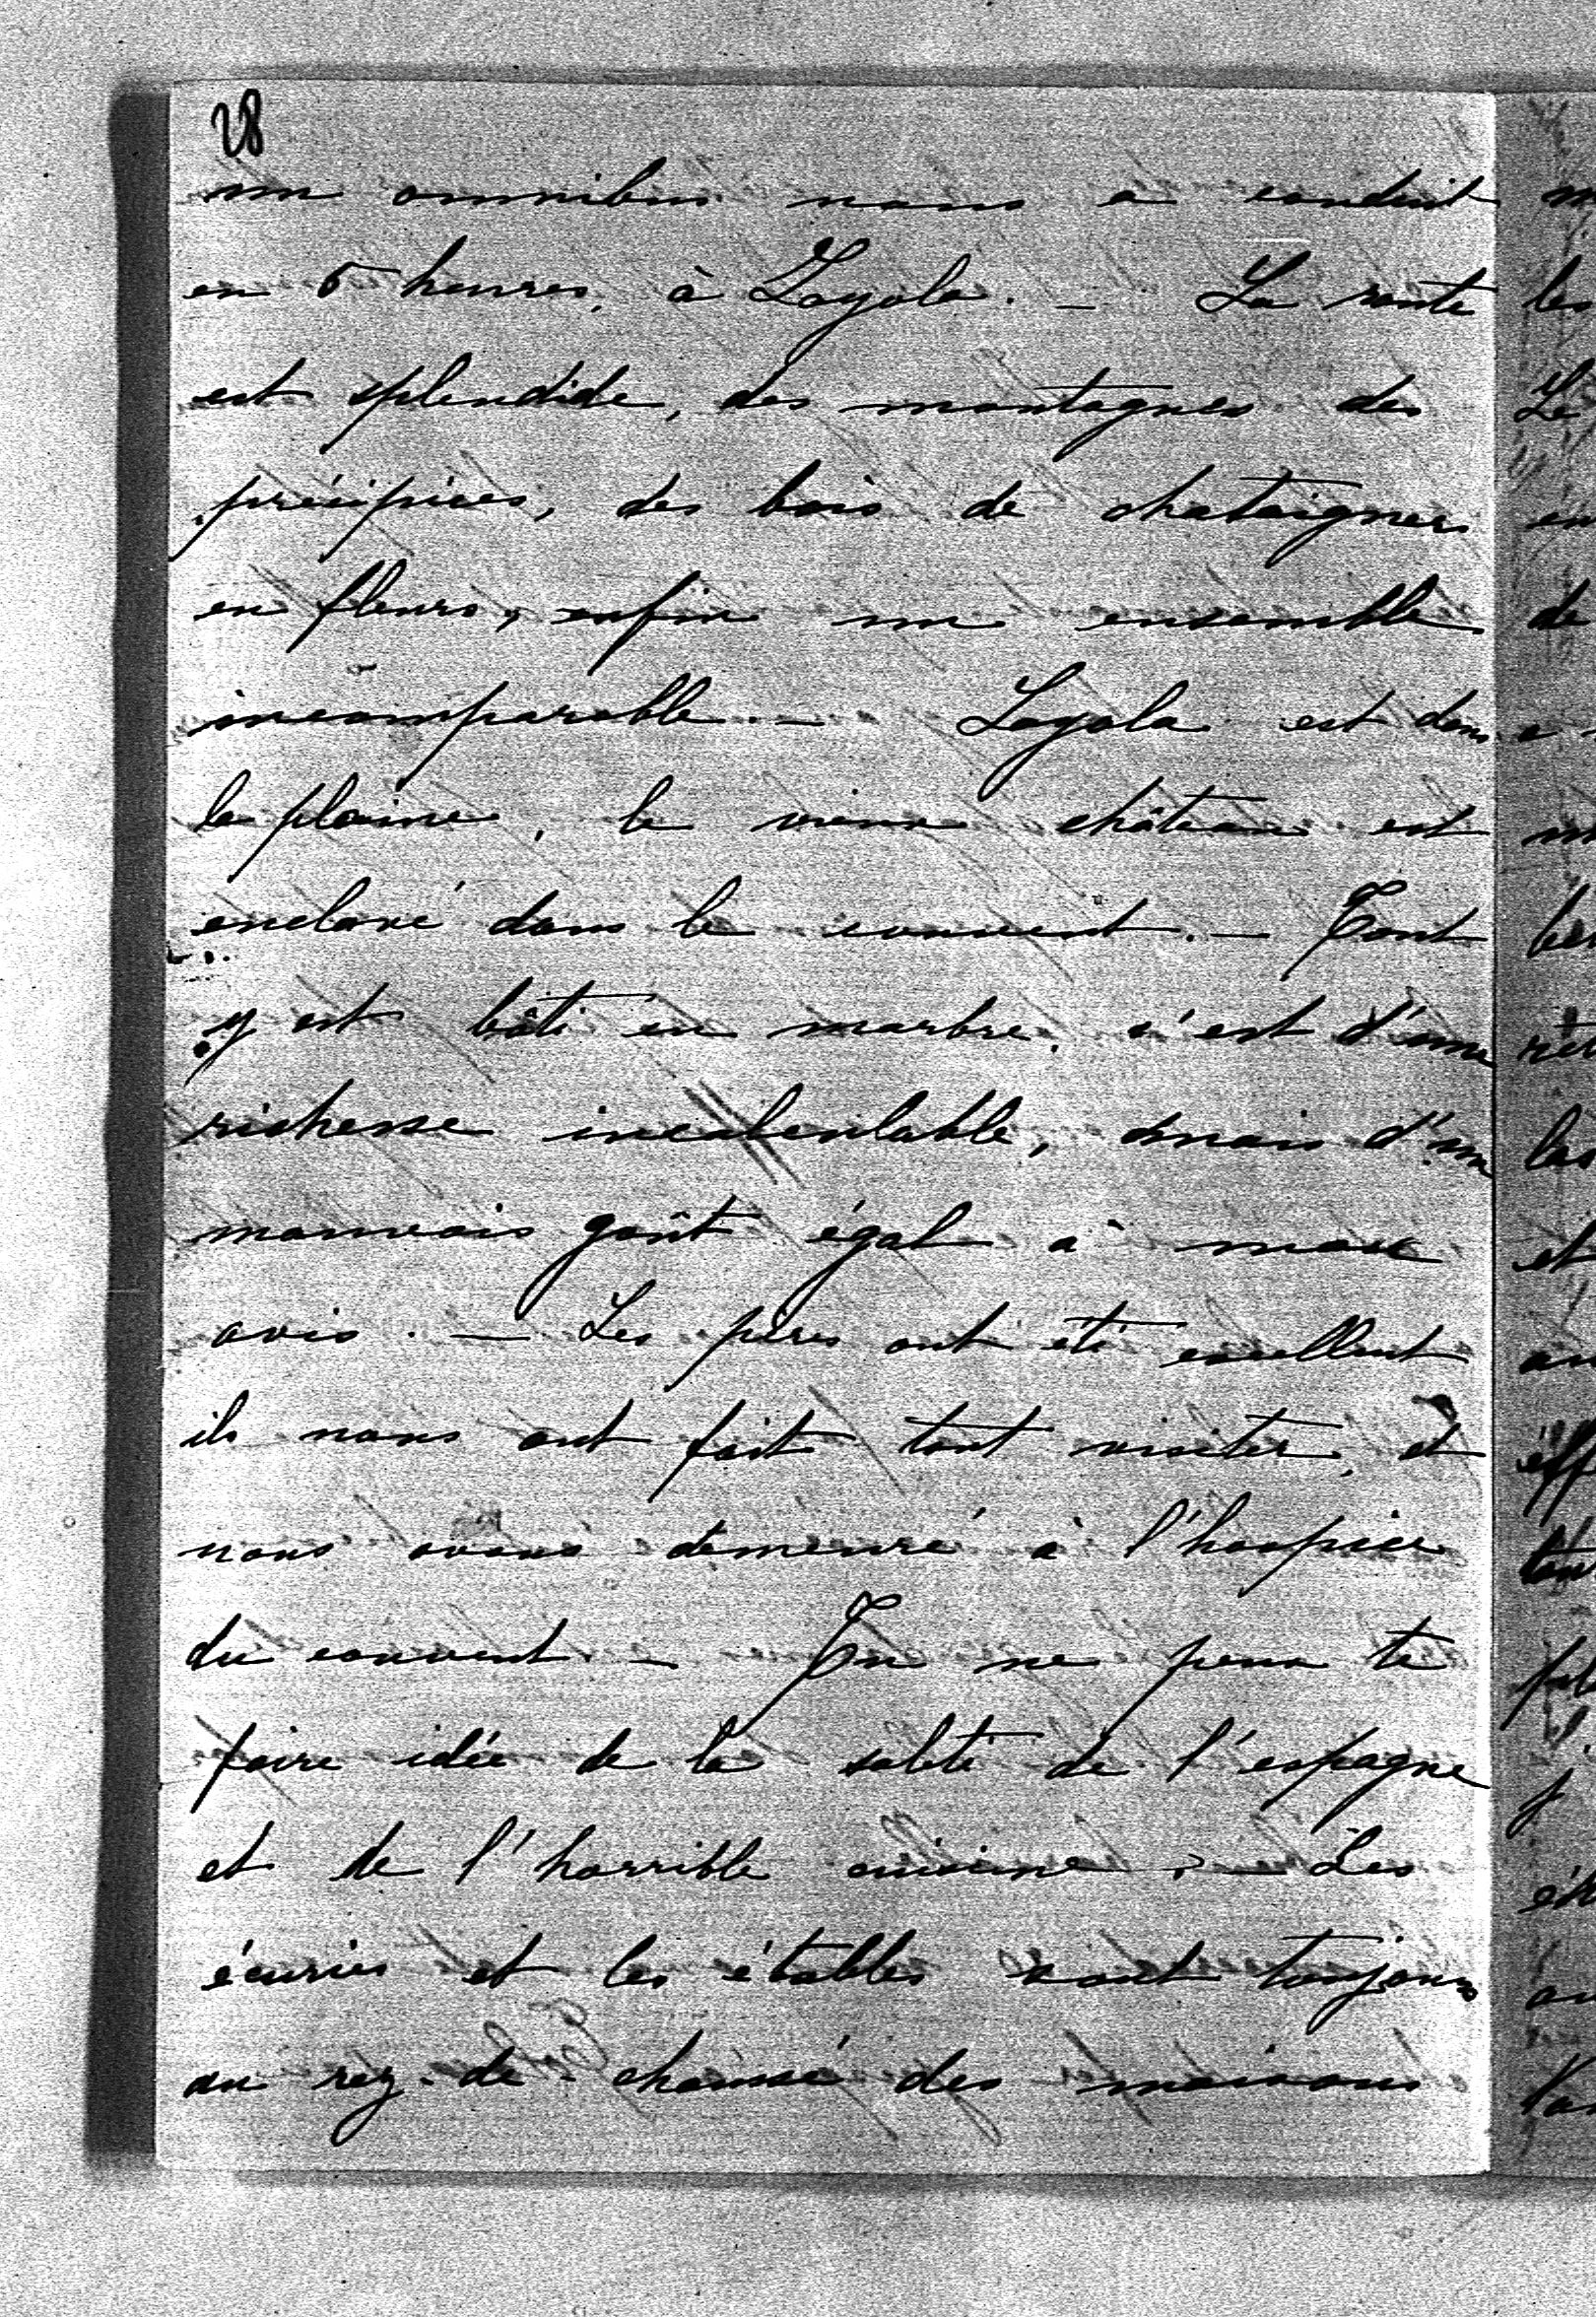 28
un omnibus nous a conduit
en 5 heures, à Loyola. - La route
est splendide, des montagnes des
précipices, des bois de chataigners
en fleurs, enfin un ensemble
incomparable. - Loyola est dans
la plaine, le vieux château est
enclavé dans le couvent. - Tout
y est bâti en marbre, c'est d'une
richesse incalculable, mais d'un
mauvais goût égal à mon
avis. - Les pères ont été excellent
ils nous ont fait tout visiter, et
nous avons demeuré à l'hospice
du couvent - Tu ne peux te
faire idée de la saleté de l'espagne
et de l'horrible cuisine, - Les
écuries et les étables sont toujours
au rez-de-chaussé des maisons